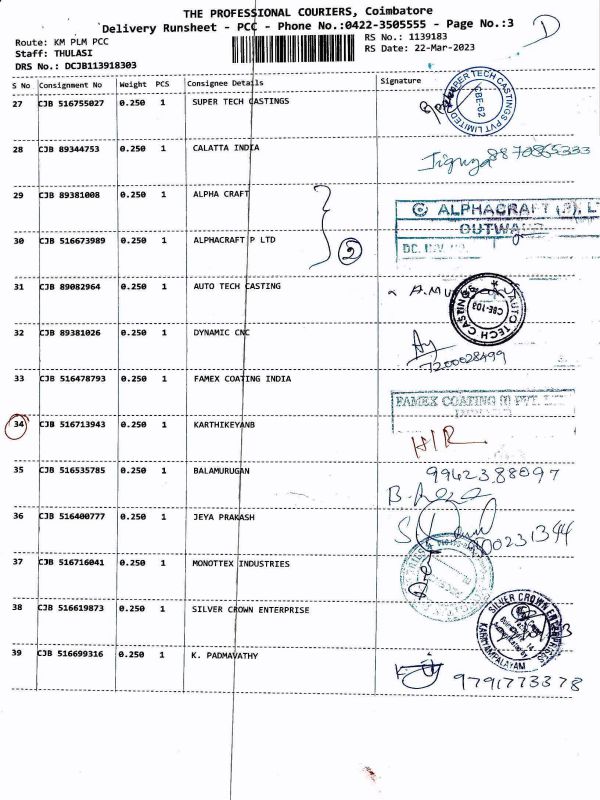 THE PROFESSIONAL COURIERS, Coimbatore
Delivery Runsheet - PCC - Phone No.:0422-3505555 - Page No.:3
D
Route: KM PLM PCC
RS No.: 1139183
Staff: THULASI
RS Date: 22-Mar-2023
DRS No.: DCJB113918303
S No Consignment No Weight PCS Consignee Details Signature
27 CJB 516755027 0.250 1 SUPER TECH CASTINGS
TECH CASTINGS PVT LIMITED
CBE-62
28 CJB 89344753 0.250 1 CALATTA INDIA
8870865333
29 CJB 89381008 0.250 1 ALPHA CRAFT
ALPHACRAFT (P). L
OUTWA
30 CJB 516673989 0.250 1 ALPHACRAFT P LTD
2
31 CJB 89082964 0.250 1 AUTO TECH CASTING
AUTO TECH CASTINGS
CBE-103
32 CJB 89381026 0.250 1 DYNAMIC CNC
7200028499
33 CJB 516478793 0.250 1 FAMEX COATING INDIA
FAMEX COATING (I) PVT. LTD
34 CJB 516713943 0.250 1 KARTHIKEYANB
H/R
35 CJB 516535785 0.250 1 BALAMURUGAN
9942388097
36 CJB 516400777 0.250 1 JEYA PRAKASH
00231344
37 CJB 516716041 0.250 1 MONOTTEX INDUSTRIES
38 CJB 516619873 0.250 1 SILVER CROWN ENTERPRISE
SILVER CROWN ENTERPRISES
KARIYAMPALAYAM
39 CJB 516699316 0.250 1 K. PADMAVATHY
9791773378